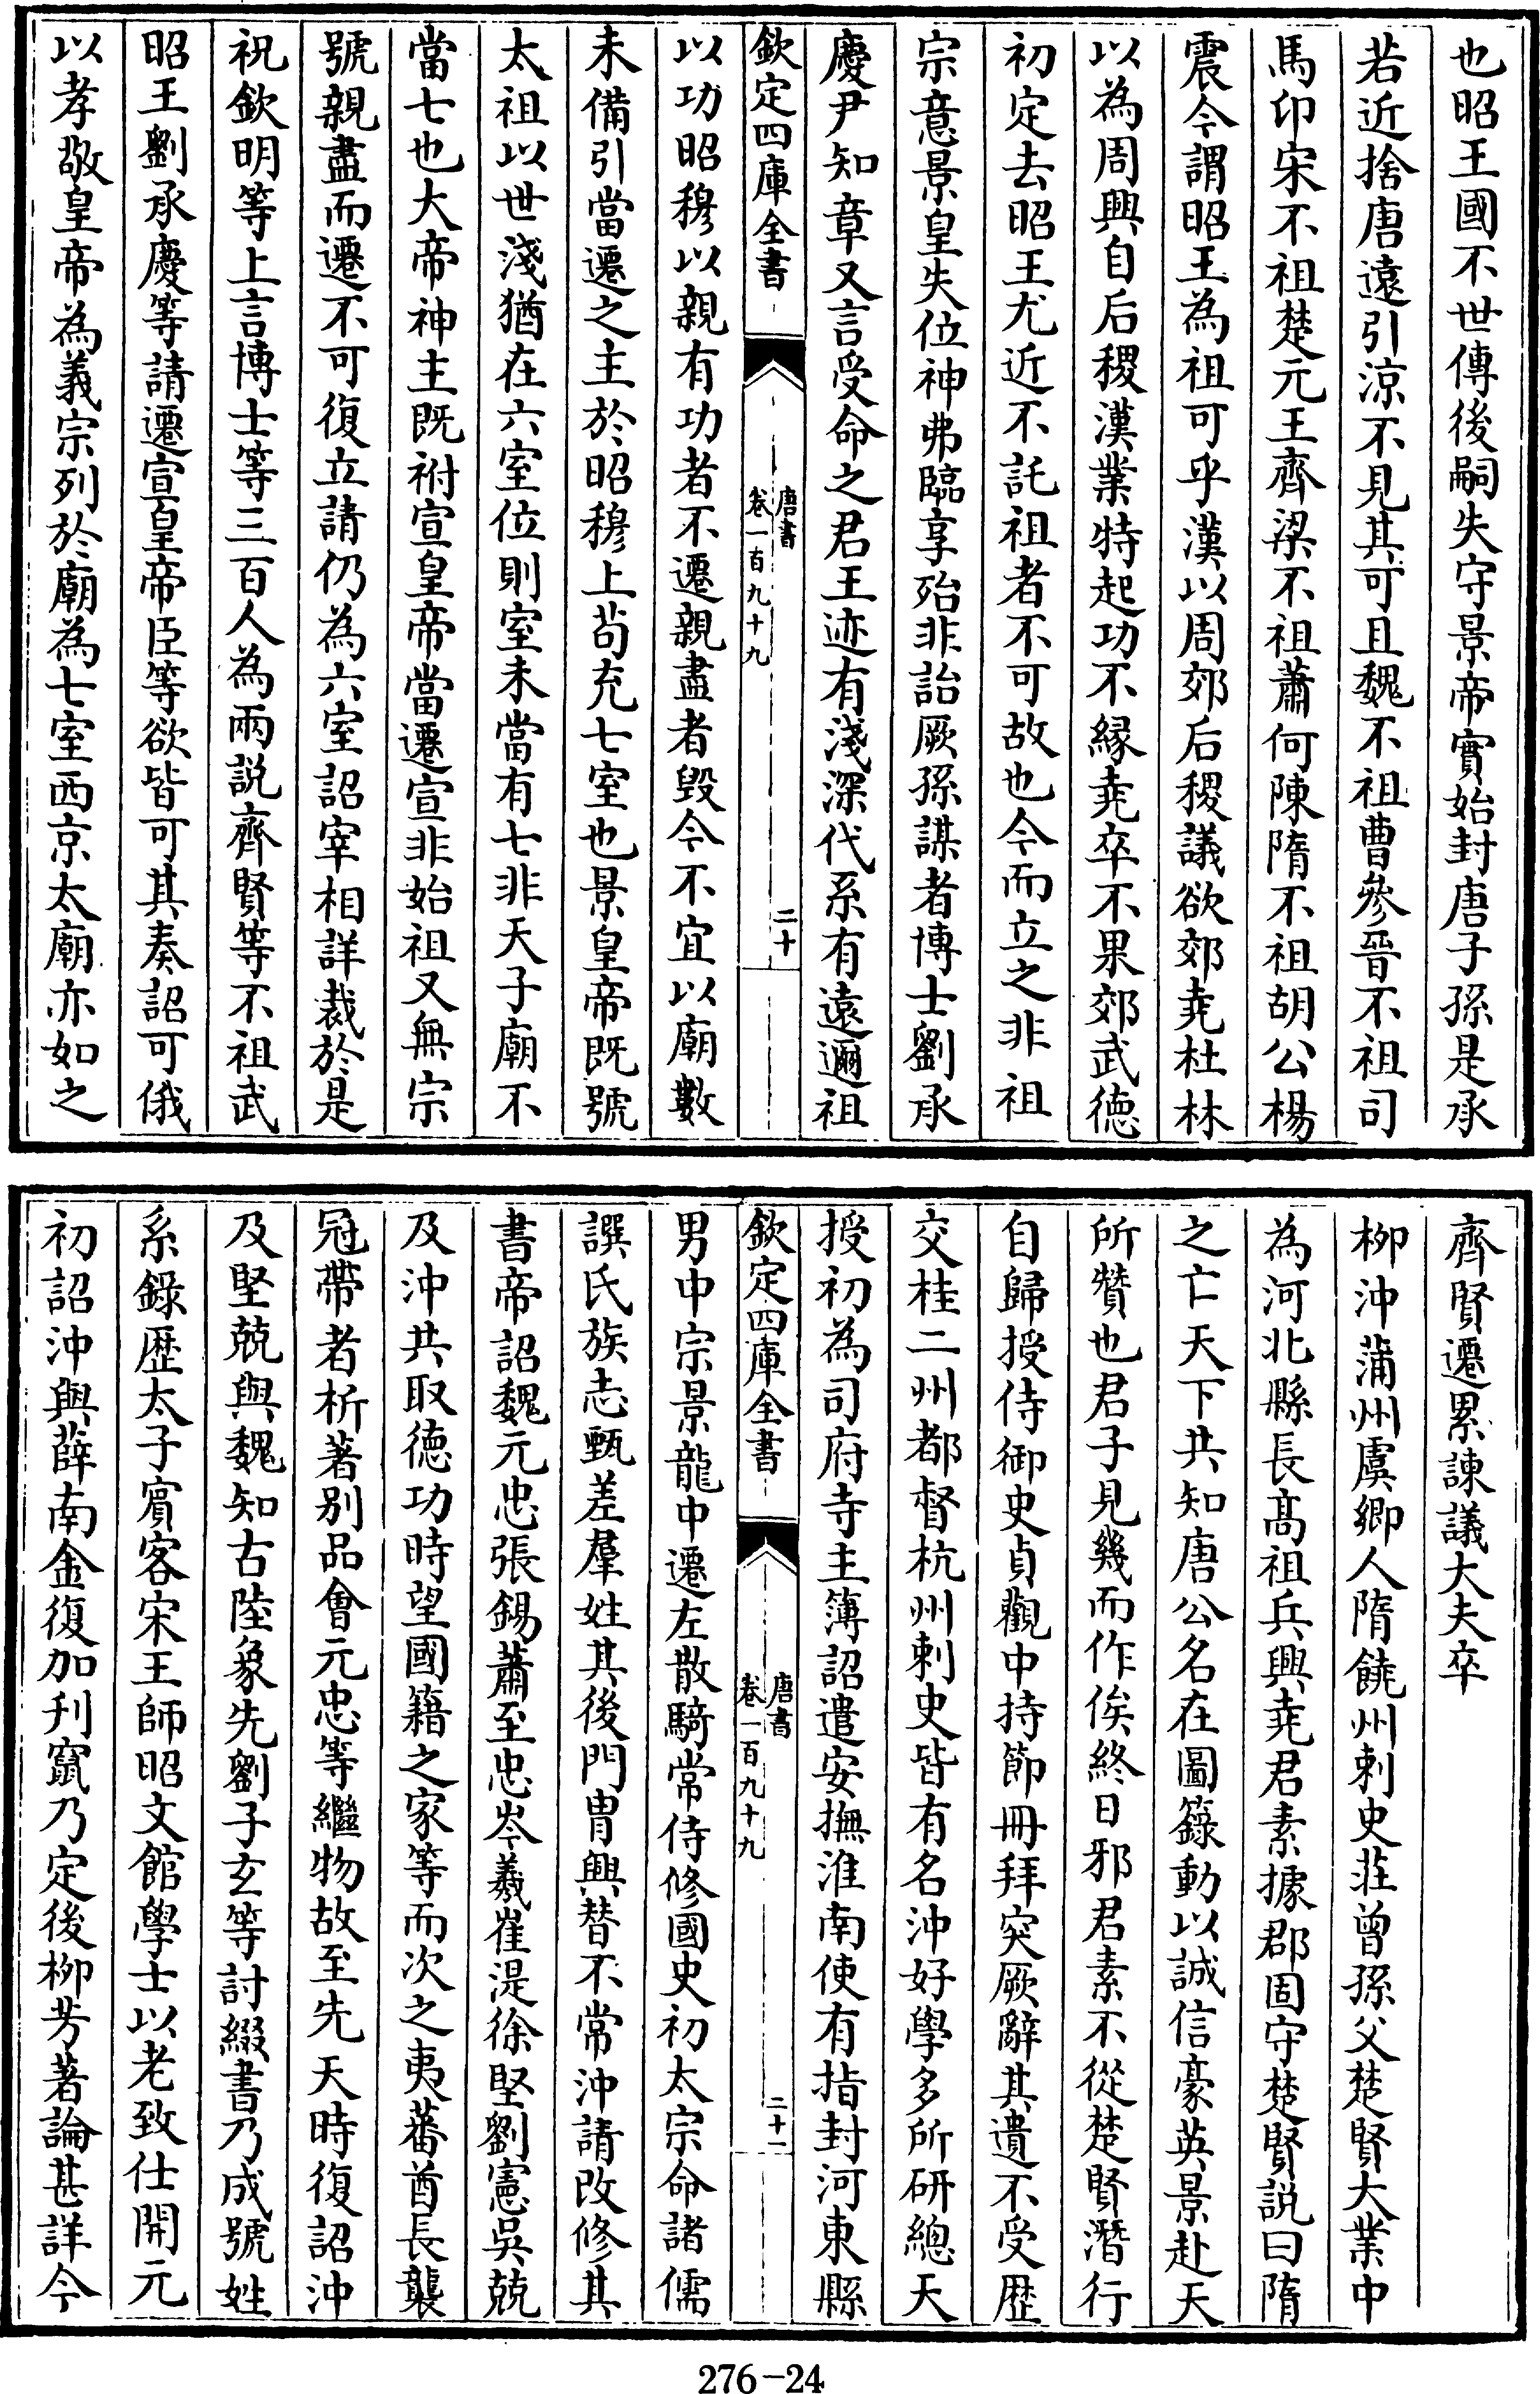 也昭王國不世傳後嗣失守景帝實始封唐子孫是承
若近捨唐遠引涼不見其可且魏不祖曹參晉不祖司
馬卬宋不祖楚元王齊梁不祖蕭何陳隋不祖胡公楊
震今謂昭王為祖可乎漢以周郊后稷議欲郊堯杜林
以為周興自后稷漢業特起功不緣堯卒不果郊武徳
初定去昭王尤近不託祖者不可故也今而立之非祖
宗意景皇失位神弗臨享殆非詒厥孫謀者博士劉承
慶尹知章又言受命之君王迹有淺深代系有遠邇祖
欽定四庫全書
唐書
卷一百九十九
二十
以功昭穆以親有功者不遷親盡者毀今不宜以廟數
未備引當遷之主於昭穆上苟充七室也景皇帝既號
太祖以世淺猶在六室位則室未當有七非天子廟不
當七也大帝神主既祔宣皇帝當遷宣非始祖又無宗
號親盡而遷不可復立請仍為六室詔宰相詳裁於是
祝欽明等上言博士等三百人為兩説齊賢等不祖武
昭王劉承慶等請遷宣皇帝臣等欲皆可其奏詔可俄
以孝敬皇帝為義宗列於廟為七室西京太廟亦如之
齊賢遷累諫議大夫卒
柳沖蒲州虞鄉人隋饒州刺史莊曾孫父楚賢大業中
為河北縣長髙祖兵興堯君素據郡固守楚賢説曰隋
之亡天下共知唐公名在圖籙動以誠信豪英景赴天
所贊也君子見幾而作俟終日邪君素不從楚賢潛行
自歸授侍御史貞觀中持節冊拜突厥辭其遺不受歴
交桂二州都督杭州刺史皆有名沖好學多所研總天
授初為司府寺主簿詔遣安撫淮南使有指封河東縣
欽定四庫全書
唐書
卷一百九十九
二十一
男中宗景龍中遷左散騎常侍修國史初太宗命諸儒
譔氏族志甄差羣姓其後門胄興替不常沖請改修其
書帝詔魏元忠張錫蕭至忠岑羲崔湜徐堅劉憲吳兢
及沖共取徳功時望國籍之家等而次之夷蕃酋長襲
冠帶者析著别品會元忠等繼物故至先天時復詔沖
及堅兢與魏知古陸象先劉子玄等討綴書乃成號姓
系錄歴太子賓客宋王師昭文館學士以老致仕開元
初詔沖與薛南金復加刋竄乃定後柳芳著論甚詳今
276-24